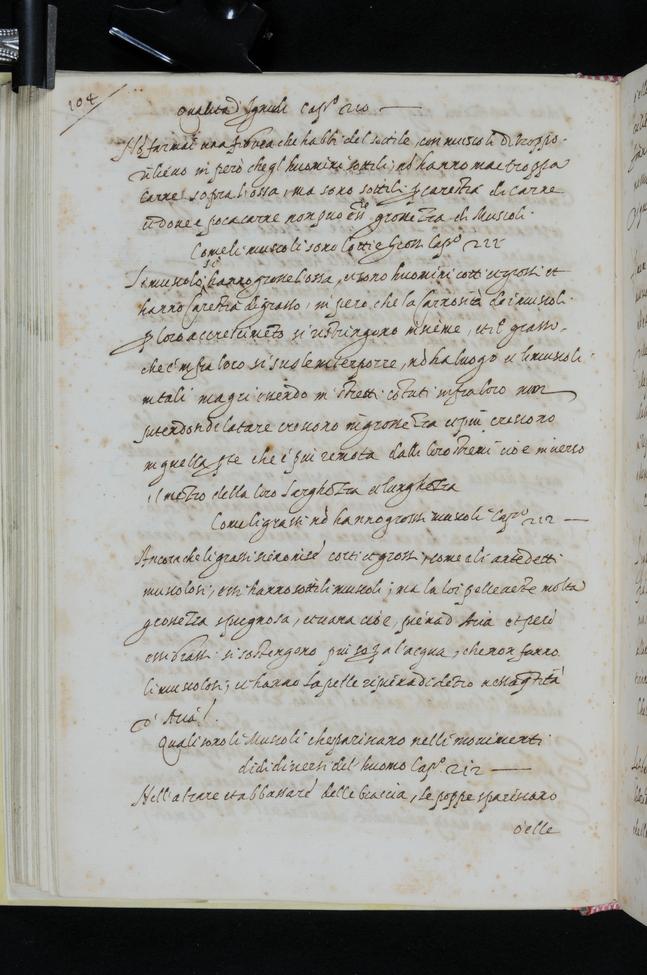 104
qualità d'Ignudi Cap.º 210
Nõ far mai una figura che habbi del sottile, con muscoli di troppo
rilievo in però che gl'huomini sottili; nõ hanno mai troppa
Carne sopra l'ossa, ma sono sottili p carestia di carne
et dov'e poca carne non può grossezza di Muscoli.
Come li muscoli sono Corti e Grossi Cap.º
I muscolosi hanno grosse l'ossa, e sono huomini corti et grossi et
hanno Carestia di grasso, in però che la Carnosità de i muscoli
p loro accrescimẽto si ristringono insieme, et il grasso
che infra loro si suole interporre, nõ ha luogo et li muscoli
in tali magri essendo in stretti infra loro non
potendo si dilatare crescono in grossezza et più crescono
in quella pte che è più remota dalli loro stremi cioè inverso
il mezzo della loro larghezza et lunghezza
Come li grassi nõ hanno grossi muscoli Cap.º 212
Ancora che li grassi sieno in se corti et grossi, come gli antedetti
muscolosi, essi hanno sottili muscoli; ma la loro pelle veste molta
grossezza spugnosa, et vana cioè, piena d'Aria et però
essi grassi si sostengono più sopra l'acqua, che non fanno
li muscolosi, che hanno la pelle rinchiusa di dẽtro
d'Aria.
Quali sono li Muscoli che spariscano nelli movimenti
diversi del huomo Cap.º 212
Nell'alzare et abbassare delle braccia, le poppe spariscano
o'elle